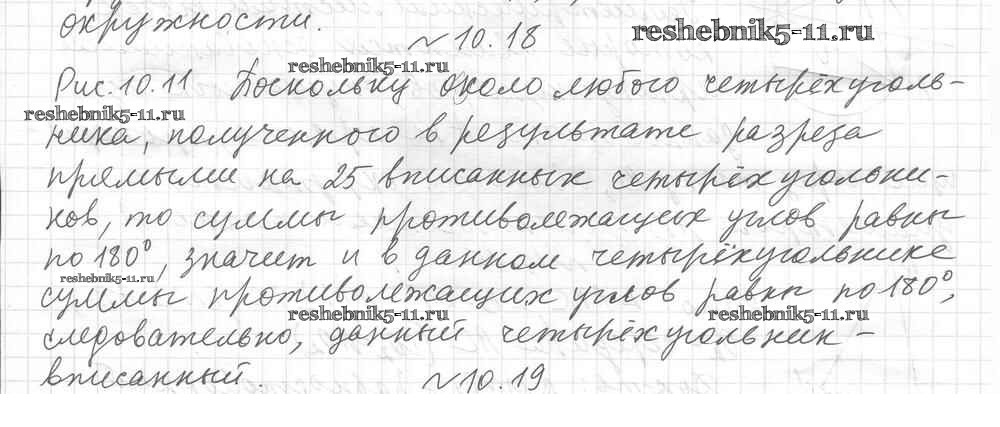 окружности.
№10.18
reshebnik5-11.ru
reshebnik5-11.ru
Рис. 10.11 Поскольку около любого четырёхуголь-
reshebnik5-11.ru
ника, полученного в результате разреза
прямыми на 25 вписанных четырёхугольни-
ков, то суммы противолежащих углов равны
по 180°, значит и в данном четырёхугольнике
reshebnik5-11.ru
суммы противолежащих углов равны по 180°,
reshebnik5-11.ru
reshebnik5-11.ru
следовательно, данный четырёхугольник -
вписанный.
№10.19